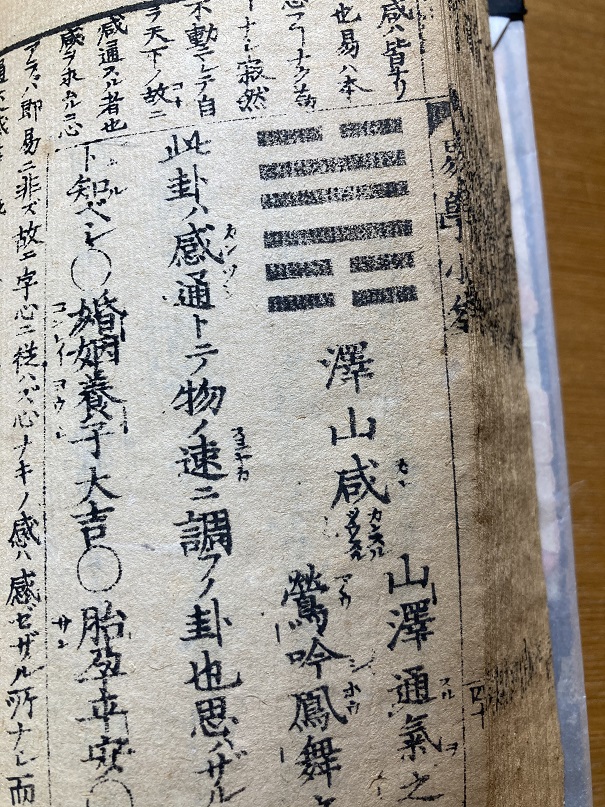 易學小筌
澤山咸
山澤通氣之
鶯吟鳳舞
此卦ハ感通トテ物ノ速ニ調フノ卦也思ハザル
ト知ベシ〇婚姻養子大吉〇胎孕平安〇
咸ハ皆
也易ハ本
寂然
不動ニシテ自
ラ天下ノ故ニ
感通スル者也
感ヲ求ムル心
アラバ即易ニ非ズ故ニ字心ニ從ハズ心ナキノ感ハ感ゼザル所ナシ而